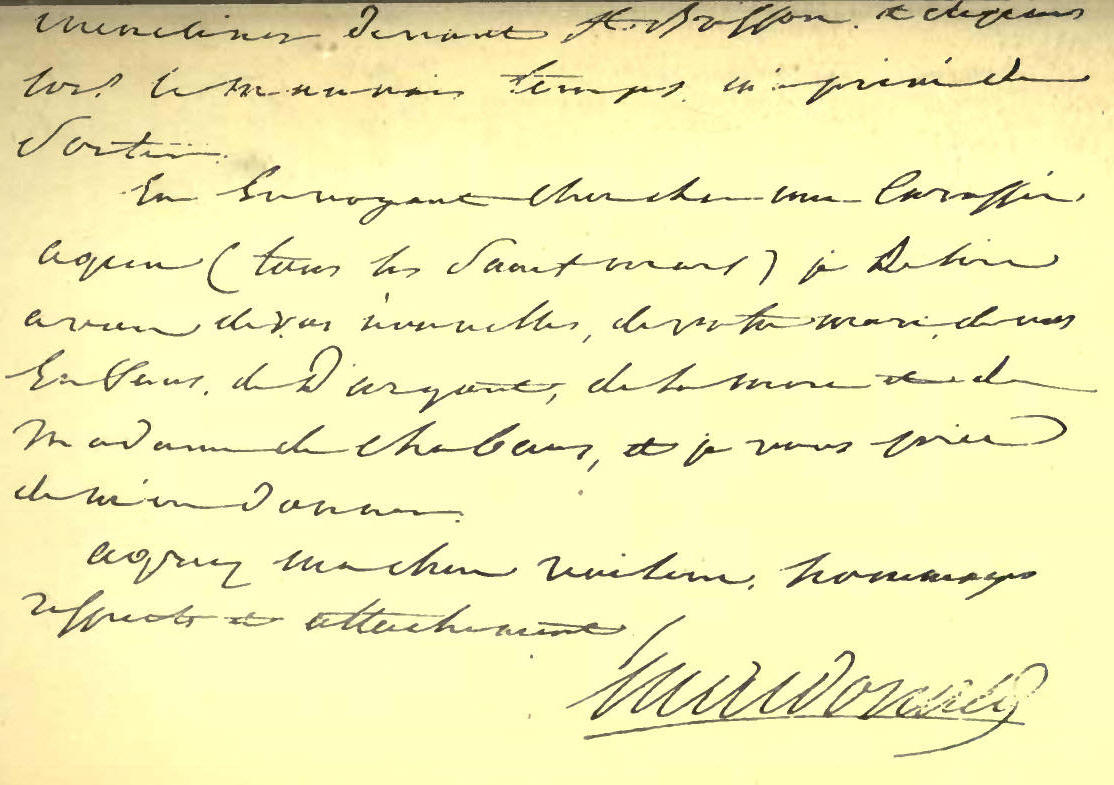 devant St. Brisson. et depuis
lors le mauvais temps m'a privé de
sortir.
En Envoyant chercher une
aqueu (tous les sont morts) je desire
avoir de vos nouvelles, de votre mari, de vos
Enfans, de D'argout, de la mere et de
Madame de Chabaus, et je vous prie
de m'en donner.
agreez ma chere voisine, hommages
respects et attachement
Macdonald